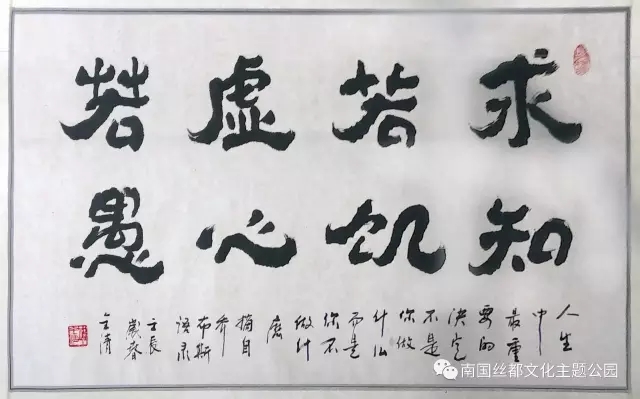 求知
若饥
虚心
若愚
人生
中
最重
要的
决定
不是
你做
什么
而是
你不
做什
麽
摘自
乔
布斯
语录
壬辰
岁春
南国丝都文化主题公园